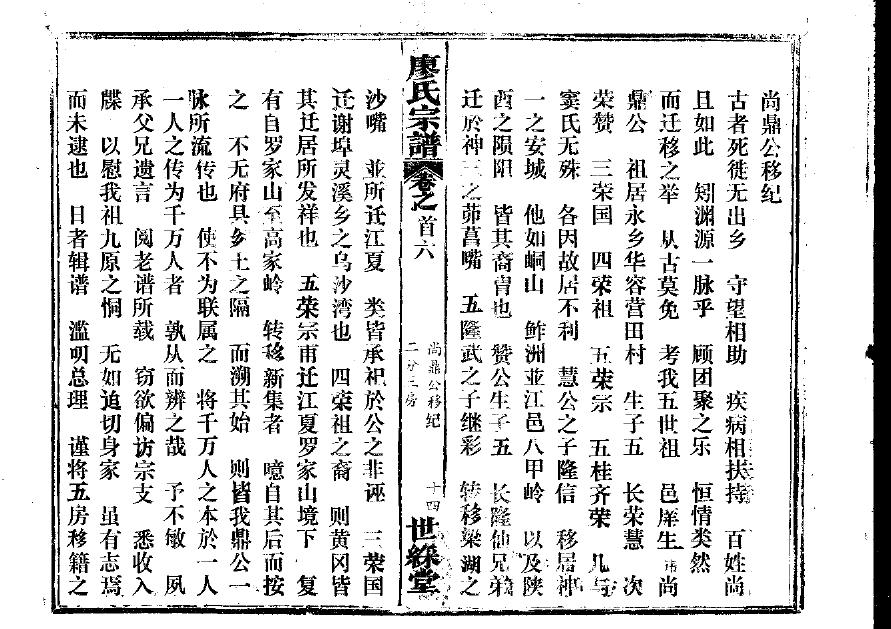 尚鼎公移纪
古者死徙无出乡　守望相助　疾病相扶持　百姓尚
且如此　矧渊源一脉乎　顾团聚之乐　恒情类然
而迁移之举　从古莫免　考我五世祖　邑庠生　讳尚
鼎公　祖居永乡华容营田村　生子五　长荣慧　次
荣赞　三荣国　四荣祖　五荣宗　五桂齐荣　几与
窦氏无殊　各因故居不利　慧公之子隆信　移居神
一之安城　他如峒山　鲊洲並江邑八甲岭　以及陕
西之陨阳　皆其裔胄也　赞公生子五　长隆仙兄弟
迁於神三之茆菖嘴　五隆武之子继彩　转移梁湖之
廖氏宗譜　卷之　首六　尚鼎公移纪　二分三房　十四　世綵堂
沙嘴　並所迁江夏　类皆承祀於公之非诬　三荣国
迁谢埠灵溪乡之乌沙湾也　四荣祖之裔　则黄冈皆
其迁居所发祥也　五荣宗甫迁江夏罗家山境下　复
有自罗家山至高家岭　转移新集者　噫自其后而按
之　不无府具乡土之隔　而溯其始　则皆我鼎公一
脉所流传也　使不为联属之　将千万人之本於一人
一人之传为千万人者　孰从而辨之哉　予不敏　夙
承父兄遗言　阅老谱所载　窃欲偏访宗支　悉收入
牒　以慰我祖九原之恫　无如迫切身家　虽有志焉
而未逮也　日者辑谱　滥叨总理　谨将五房移籍之